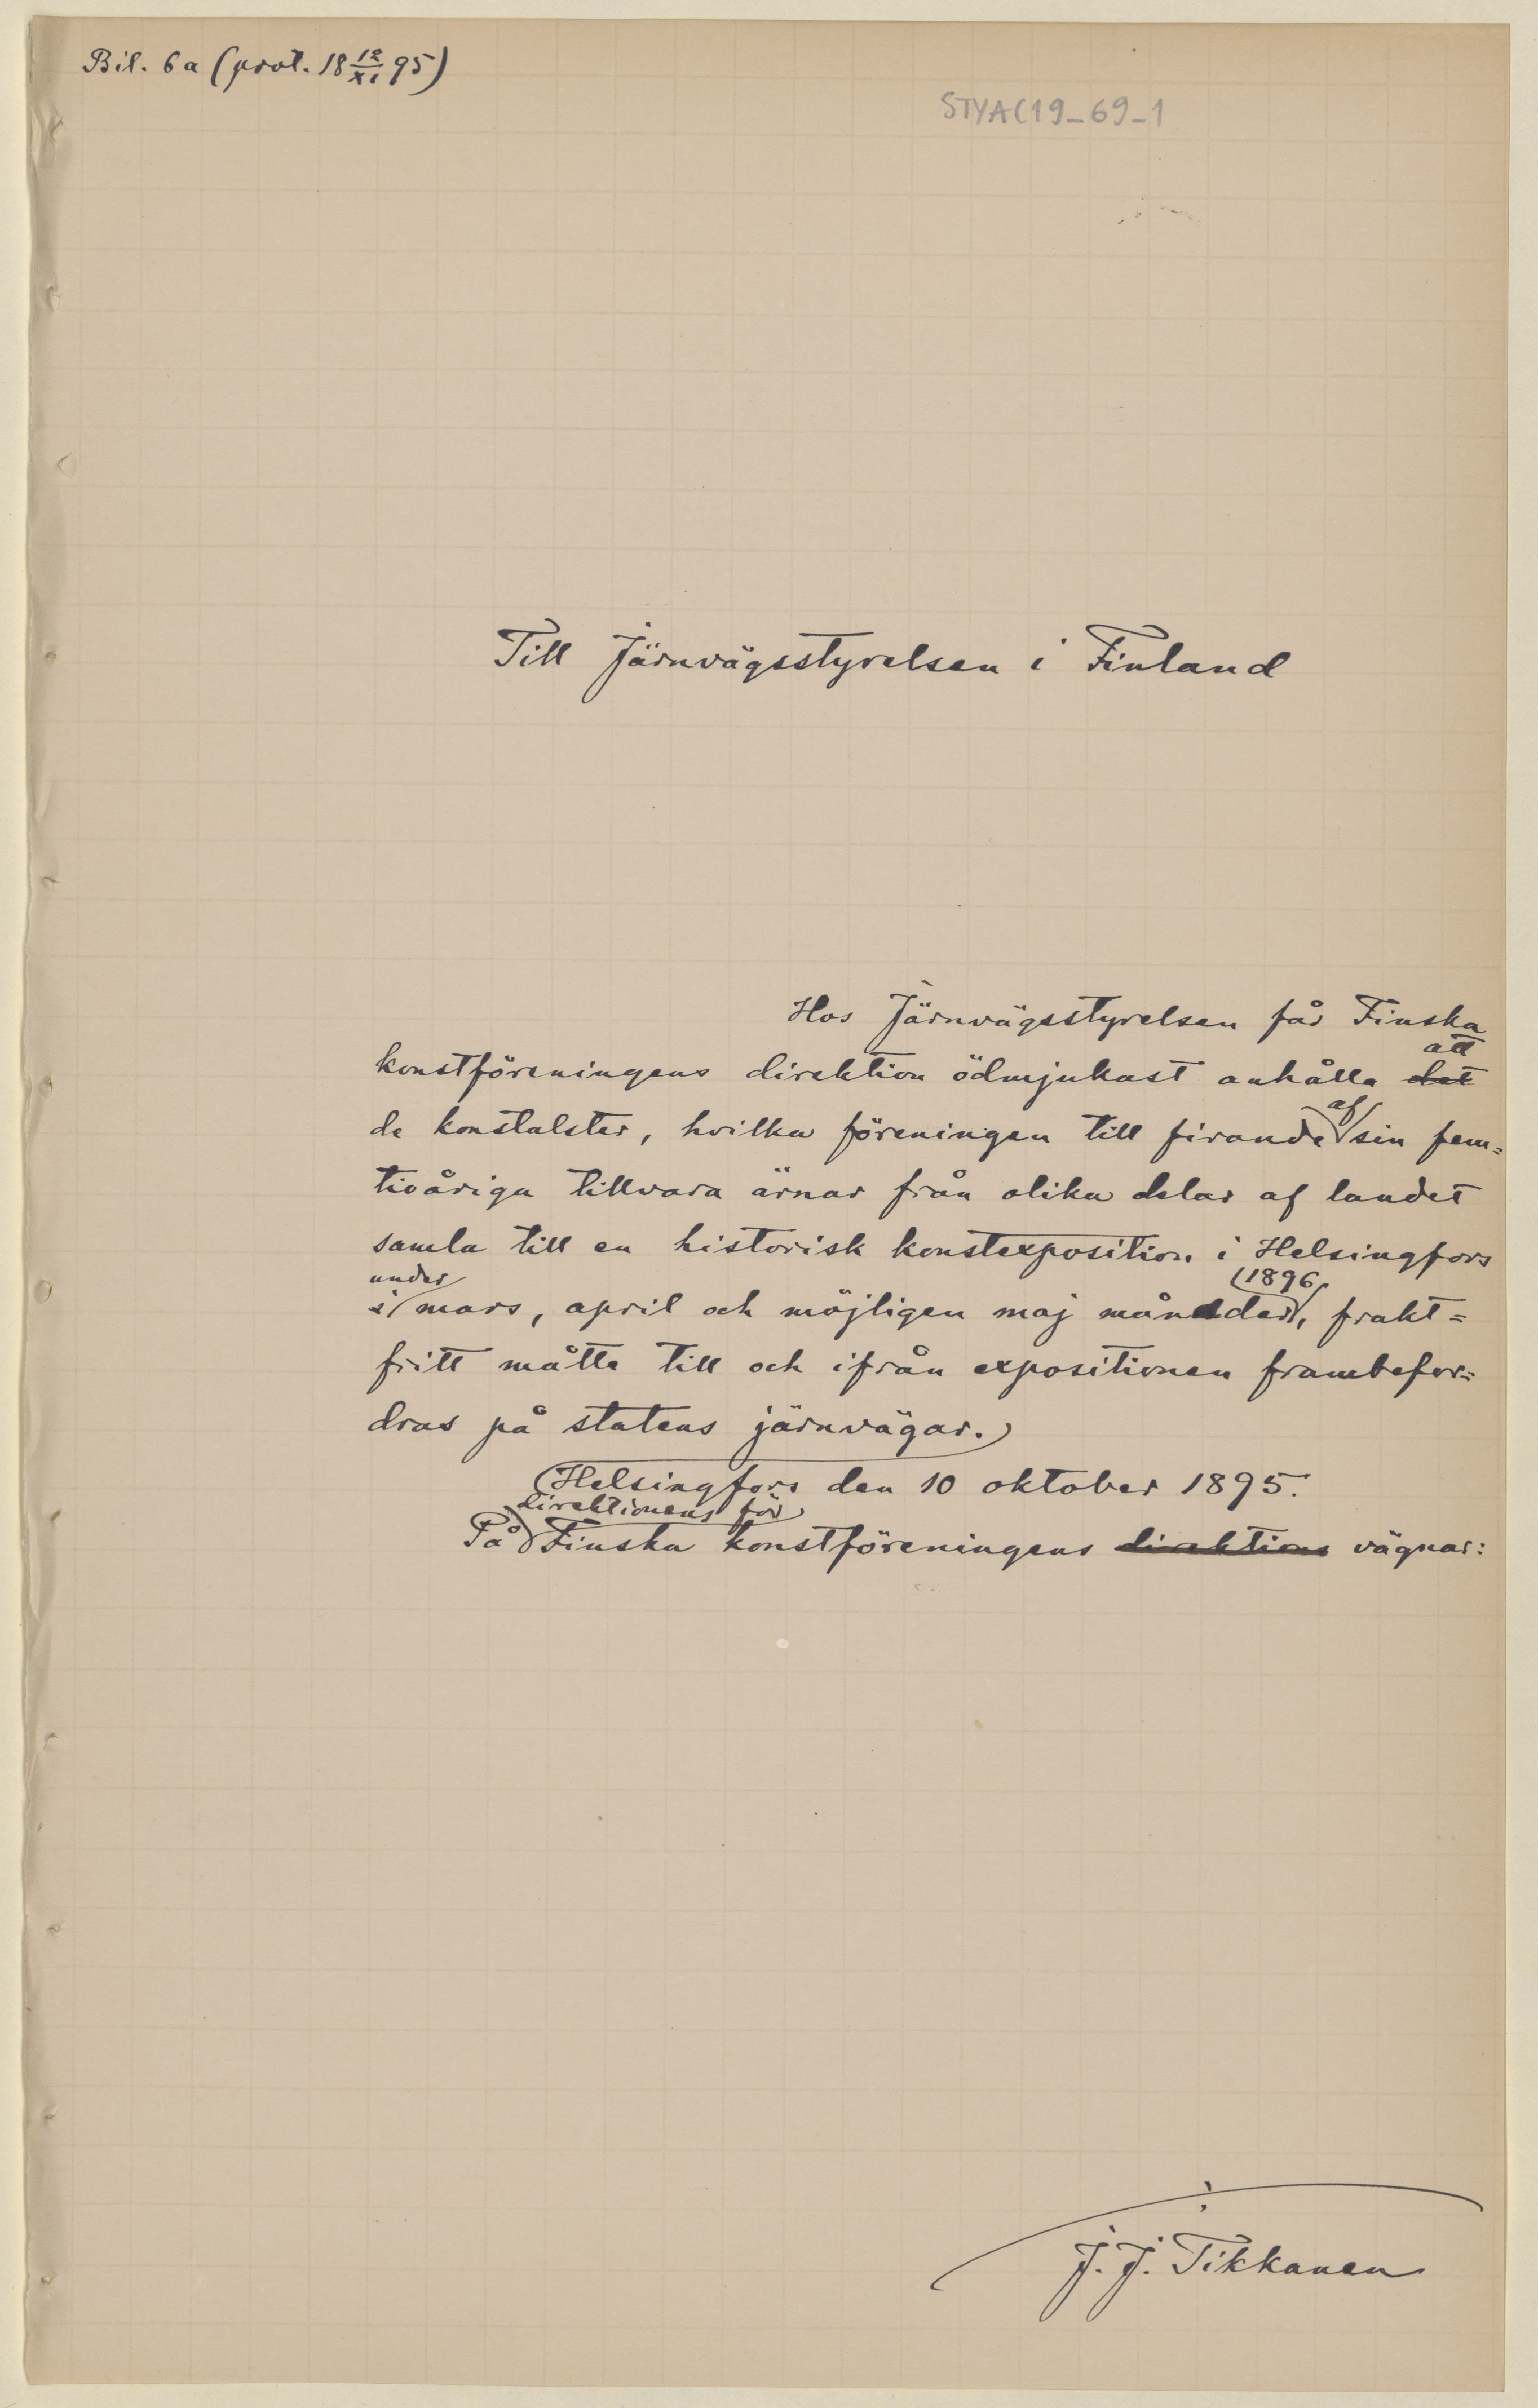 Bil. 6a (prot. 18 12/XI 95)
STYA C19_69_1
Till Järnvägsstyrelsen i Finland
Hos Järnvägsstyrelsen får Finska
att
konstföreningens direktion ödmjukast anhålla det
af
de konstalster, hvilka föreningen till firande sin fem=
tioåriga tillvara ärnar från olika delar af landet
samla till en historisk konstexposition i Helsingfors
under 1896
i mars, april och möjligen maj månader, frakt=
fritt måtte till och ifrån expositionen frambefor=
dras på statens järnvägar.
Helsingfors den 10 oktober 1895.
direktionens för
På Finska konstföreningens direktions vägnar:
J. J. Tikkanen